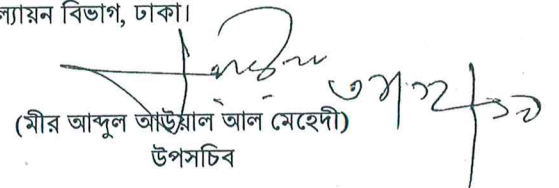 ল্যায়ন বিভাগ, ঢাকা।
(মীর আব্দুল আউয়াল আল মেহেদী)
উপসচিব